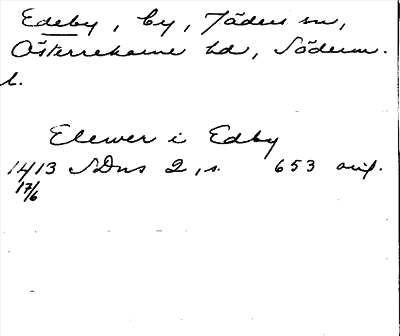 Edeby, by, Jäders sn,
Österrekarne hd, Söderm.
l.
Elewer i Edby
1413 SDns 2, s. 653 orig.
17/6